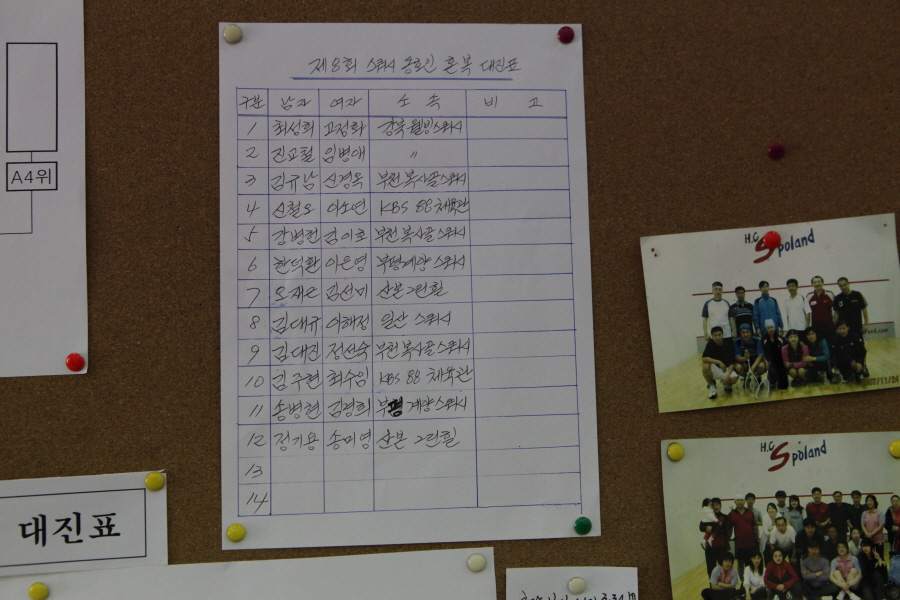 A4위
제8회 스쿼시 동호인 혼복 대진표
구분 남자 여자 소속 비고
1 최성희 고정화 강북 웰빙스쿼시
2 진교철 임병애 〃
3 김규남 신경옥 부천 복사골스쿼시
4 신철오 이소연 KBS 88 체육관
5 강병천 김이호 부천 복사골스쿼시
6 한덕환 이은영 부평계양 스쿼시
7 김선미 산본 그린힐
8 김대규 이해정 일산 스쿼시
9 김대진 정선숙 부천 복사골스쿼시
10 김주현 최수임 KBS 88 체육관
11 송병현 김경희 부평 계양스쿼시
12 정기용 송미영 산본 그린힐
13
14
대진표
H.C Spoland
H.C Spoland